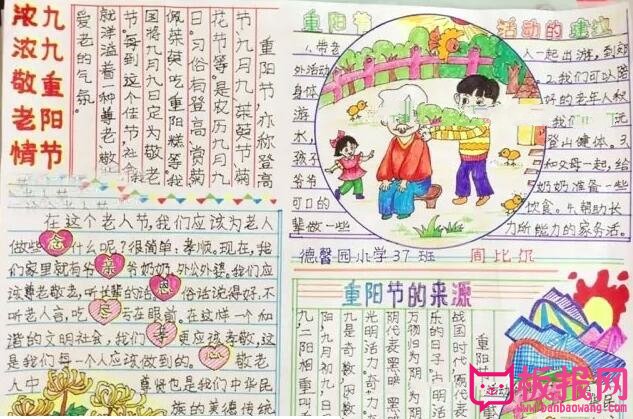 九九重阳节
浓浓敬老情
重阳节,亦称登高
节、九月九、茱萸节、菊
花节等。是农历九月九
日。习俗有登高、赏菊
佩茱萸、吃重阳糕等。我
国将九月九日定为敬老
节。每到这个佳节,社
就洋溢着一种尊敬
爱老的气氛。
重阳节 活动的建议
1.带老 人一起出游,到郊
外活动 2.我们可以陪
身体 好的老年人和
游 我们 玩
水, 登山健体。
孩子 和父母一起,给
爷爷 奶奶准备一些
可口的 饮食。4.帮助长
辈做一些 力所能力的家务活。
在这个老人节,我们应该为老人
做些 什么呢?很简单:孝顺。现在,我
们家里就有爷 爷奶奶、外公外婆,我们应
该尊老敬老,听长辈的话 恩 俗话说得好:不
听老人言,吃亏在眼前。在这样一个和
谐的文明社会,我们 更应该孝敬,这
是我们每一个人应该做到的。 敬老
人中 尊贤也是我们中华民
族的美德传统
德馨园小学37班 周比尔
重阳节的来源
重阳
战国时代
乐的日子。古
万物归为阴
阴代表黑暗
光明活力
九是奇数,因
九月初九,日
九,二阳相重,叫
板报网
www.banbaowang.com